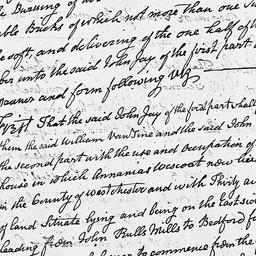 Burning of
able Bricks of which not more than one
soft, and delivering of the one half of th
ber unto the said John Jay of the first part
manner and form following viz
First That the said John Jay of the first part shall
them the said William Vandine and the said John
the second part with the use and occupation of
house in which Annanias Wescoat now live
in the County of Westchester and with Thirty a
of land Situate lying and being on the East si
leading from John Bulls Mills to Bedford
to commence from the